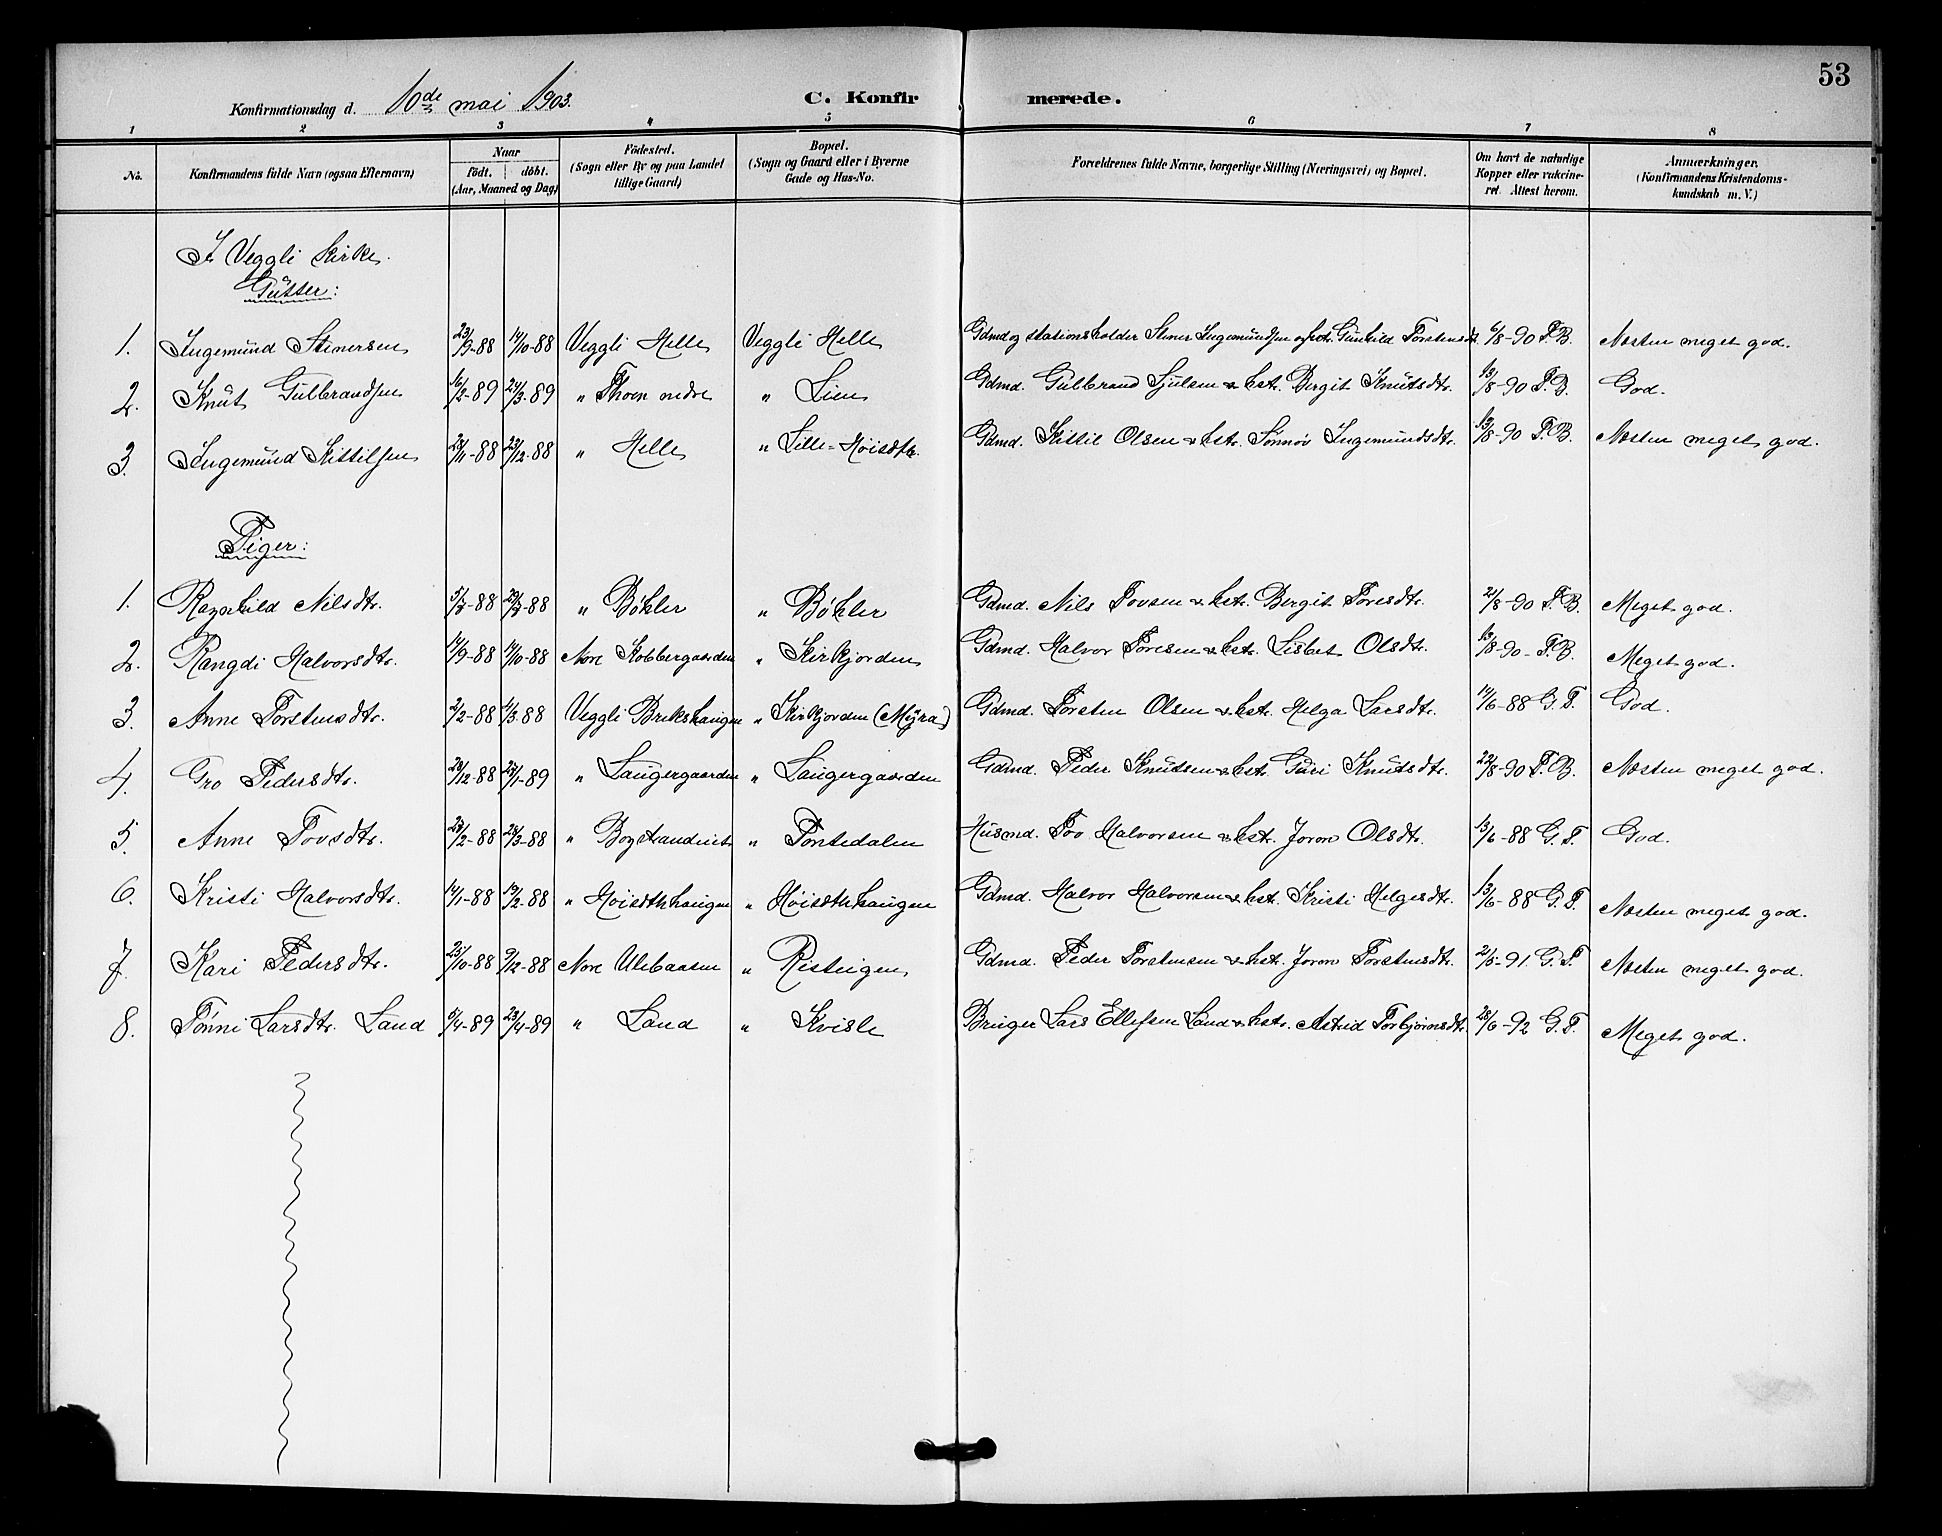 53
Konfirmationsdag d. 10de mai 1903.
C. Konfirmerede.
1 2 3 4 5 6 7 8
No.
Konfirmandens fulde Navn (ogsaa Efternavn)
Naar
födt. döbt.
(Aar, Maaned og Dag)
Födested.
(Sogn eller By og paa Landet
tillige Gaard)
Bopæl.
(Sogn og Gaard eller i Byerne
Gade og Hus-No.
Forældrenes fulde Navne, borgerlige Stilling (Næringsvei) og Bopæl.
Om havt de naturlige
Kopper eller vakcine-
ret Attest herom.
Anmærkninger.
(Konfirmandens Kristendoms-
kundskab m. V.)
I Veggli Kirke.
Gutter:
1. Ingemund Stenersen 23/9-88 14/10-88 Veggli Helle Veggli Helle Gdmd og stationsholder Stener Ingemundsen Gunhild Torstensdt. 6/8-90 T.B. Næsten meget god.
2. Knut Gulbrandsen 16/2-89 24/3-89 " Thoen nedre " Lien Gdmd. Gulbrand Sjulsen & hstr. Bergit Knutsdtr. 13/8-90 T.B. God.
3. Ingemund Kittilsen 23/12-88 " Helle " Lille-Höisdth. Gdmd. Kittil Olsen & hstr. Sönnöv Ingemundsdtr. 13/8-90 T.B. Næsten meget god.
Piger:
1. Ragnhild Nilsdtr. " Böhler " Böhler Gdmd. Nils Tovsen & hstr. Bergit Toresdtr. 21/8-90 T.B. Meget god.
2. Rangdi Halvorsdtr. 14/9-88 14/10-88 Nore Kobbergaarden " Kirkjorden Gdmd. Halvor Toresen & hstr. Lisbet Olsdtr. 13/8-90 - T.B. Meget god.
3. Anne Torstensdtr. 2/2-88 Veggli Brekshaugen " Kirkjorden (Myra) Gdmd. Torsten Olsen & hstr. Helga Larsdtr. 14/6-88 G.T. God.
4. Gro Pedersdtr. " Laugergaarden " Laugergaarden Gdmd. Peder Knutsen & hstr. Guri Knutsdtr. 22/8-90 T.B. Næsten meget god.
5. Anne Tovsdtr. " " Tontedalen Husmd. Tov Halvorsen & hstr. Joron Olsdtr. 13/6-88 G.T. God.
6. Kristi Halvorsdtr. 14/1-88 19/2-88 " Höisdthhaugen " Höisdthhaugen Gdmd. Halvor Halvorsen & hstr. Kristi Helgesdtr. 13/6-88 G.T. Næsten meget god.
7. Kari Pedersdtr. 25/10-88 9/12-88 Nore Ulebaasen " Risteigen Gdmd. Peder Torstensen & hstr. Joron Torstensdtr. 2/5-91. G.T. Næsten meget god.
8. Tönni Larsdtr. Land 6/4-89 23/4-89 " Land " Kvisle Bruger Lars Ellefsen Land & hstr. Astrid Torbjörnsdtr. 28/6-92 G.T. Meget god.